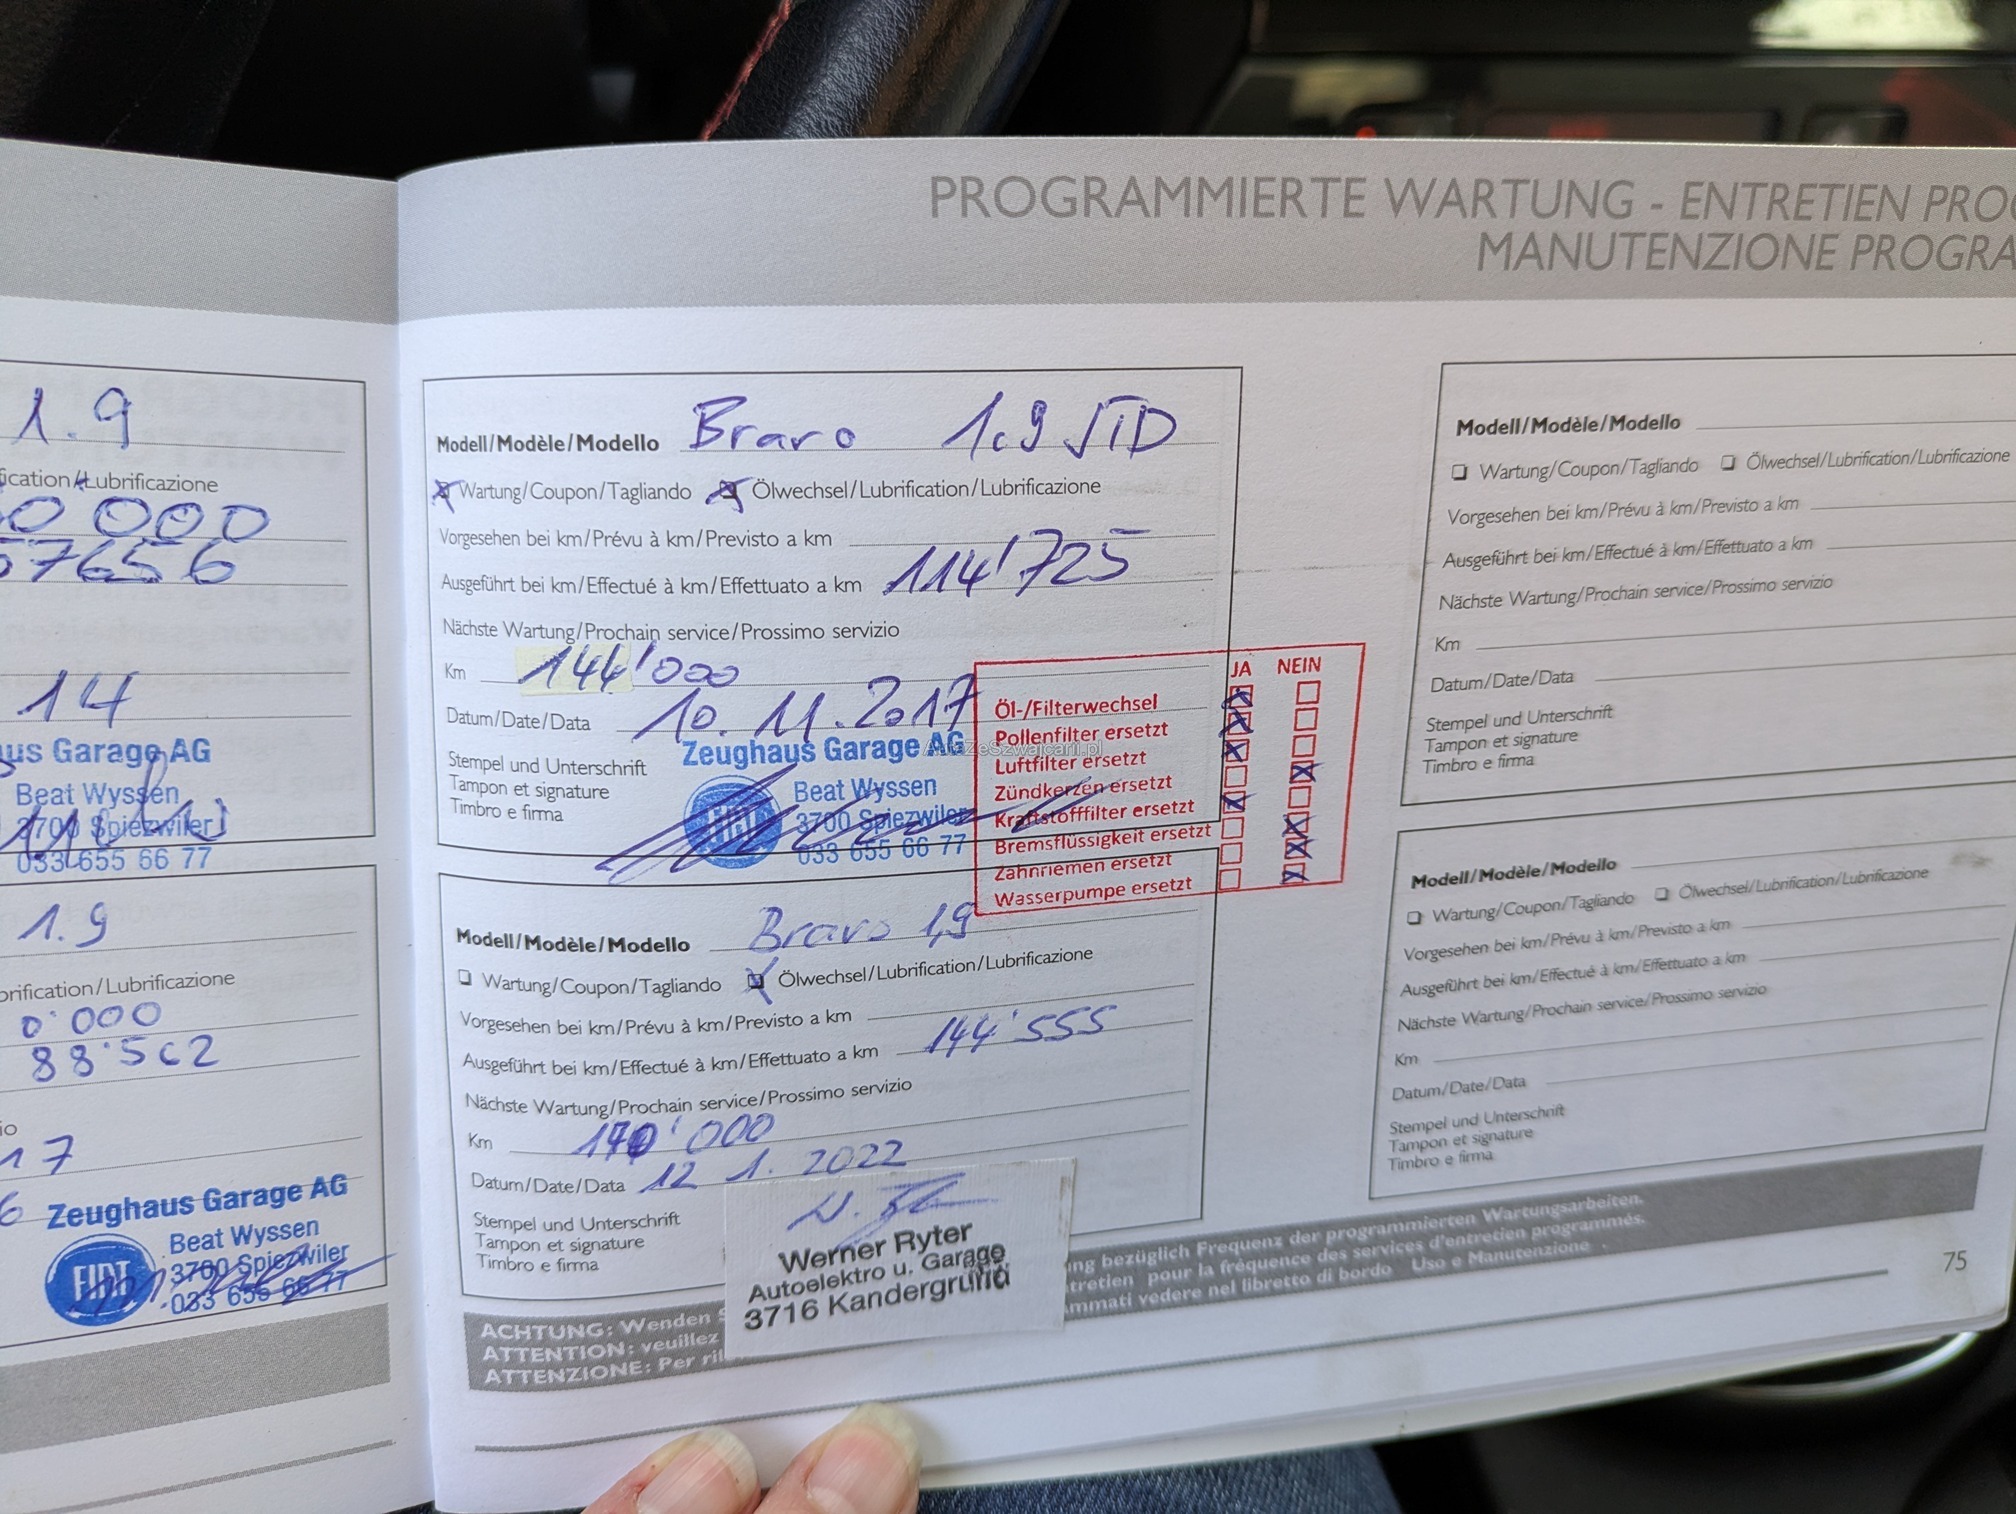 PROGRAMMIERTE WARTUNG - ENTRETIEN
MANUTENZIONE
1.9
Lubrificazione
14
Garage AG
Beat Wyssen
3700 Spiezwiler
033 655 66 77
1.9
Lubrification/Lubrificazione
17
Zeughaus Garage AG
FIAT
Beat Wyssen
3700 Spiezwiler
033 655 66 77
Modell/Modèle/Modello Bravo 1.9 JTD
Wartung/Coupon/Tagliando Ölwechsel/Lubrification/Lubrificazione
Vorgesehen bei km/Prévu à km/Previsto a km
Ausgeführt bei km/Effectué à km/Effettuato a km 114'725
Nächste Wartung/Prochain service/Prossimo servizio
Km 144'000
Datum/Date/Data 10.11.2017
Stempel und Unterschrift
Tampon et signature
Timbro e firma
Zeughaus Garage AG
FIAT
Beat Wyssen
3700 Spiezwiler
033 655 66 77
AutaZeSzwajcarii.pl
JA NEIN
Öl-/Filterwechsel
Pollenfilter ersetzt
Luftfilter ersetzt
Zündkerzen ersetzt
Kraftstofffilter ersetzt
Bremsflüssigkeit ersetzt
Zahnriemen ersetzt
Wasserpumpe ersetzt
Modell/Modèle/Modello Bravo 1,9
Wartung/Coupon/Tagliando Ölwechsel/Lubrification/Lubrificazione
Vorgesehen bei km/Prévu à km/Previsto a km
Ausgeführt bei km/Effectué à km/Effettuato a km 144'555
Nächste Wartung/Prochain service/Prossimo servizio
Km 170'000
Datum/Date/Data 12 1. 2022
Stempel und Unterschrift
Tampon et signature
Timbro e firma
Werner Ryter
Autoelektro u. Garage
3716 Kandergrund
Modell/Modèle/Modello
Wartung/Coupon/Tagliando Ölwechsel/Lubrification/Lubrificazione
Vorgesehen bei km/Prévu à km/Previsto a km
Ausgeführt bei km/Effectué à km/Effettuato a km
Nächste Wartung/Prochain service/Prossimo servizio
Km
Datum/Date/Data
Stempel und Unterschrift
Tampon et signature
Timbro e firma
Modell/Modèle/Modello
Wartung/Coupon/Tagliando Ölwechsel/Lubrification/Lubrificazione
Vorgesehen bei km/Prévu à km/Previsto a km
Ausgeführt bei km/Effectué à km/Effettuato a km
Nächste Wartung/Prochain service/Prossimo servizio
Km
Datum/Date/Data
Stempel und Unterschrift
Tampon et signature
Timbro e firma
ACHTUNG: Wenden bezüglich Frequenz der programmierten Wartungsarbeiten.
ATTENTION: veuillez pour la fréquence des services d'entretien programmés.
ATTENZIONE: Per vedere nel libretto di bordo Uso e Manutenzione .
75